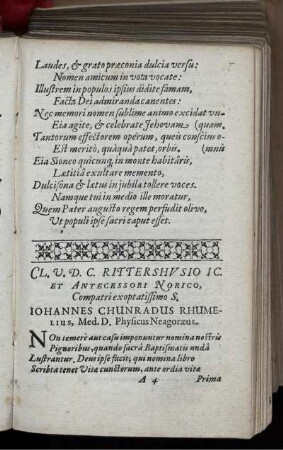 Laudes, & grato præconia dulcia versu:
Nomen amicum in vota vocate:
Illustrem in populos ipsius didite famam,
Facta Dei admiranda canentes:
Nec memori nomen sublime animo excidat vn-
Eia agite, & celebrate Jehovam (quam,
Tantorum effectorem operum, queis conscius o-
Est meritò, quàquà patet, orbis. (mnis
Eia Sioneo quicunq; in monte habitâris,
Lætitiâ exultare memento,
Dulcisona & lætus in jubila tollere voces.
Namque tui in medio ille moratur,
Quem Pater augusto regem perfudit olivo,
Ut populi ipse sacri caput esset.
CL. V. D. C. RITTERSHVSIO IC.
ET ANTECESSORI NORICO,
Compatri exoptatissimo S.
IOHANNES CHUNRADUS RHUME-
LIUS, Med. D. Physicus Neagoræus.
NOn temerè aut casu imponuntur nomina nostris
Pignoribus, quando sacrâ Baptismatis undâ
Lustrantur. Deus ipse facit; qui nomina libro
Scribta tenet Vitæ cunctorum, ante ordia vitæ
A 4 Prima